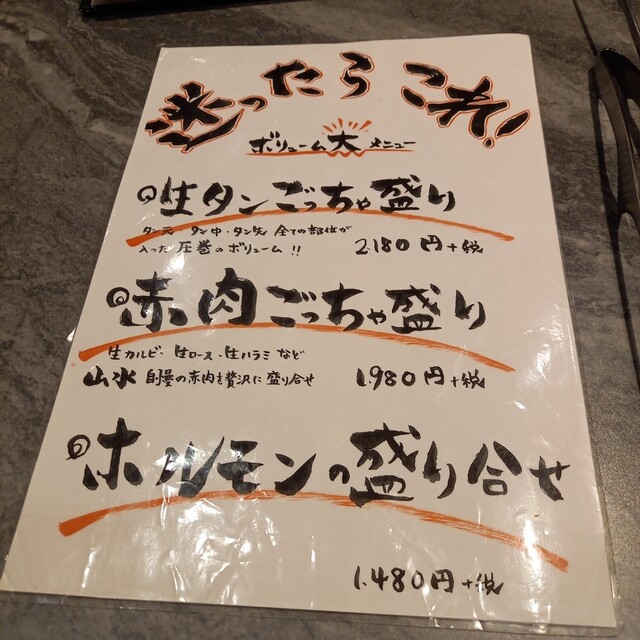 迷ったらこれ!
ボリューム大メニュー
生タンごっちゃ盛り
タン元 タン中・タン先 全ての部位が
入った 圧巻のボリューム!!
2.180円+税
赤肉ごっちゃ盛り
生カルビ・生ロース・生ハラミなど
山水 自慢の赤肉を贅沢に盛り合せ
1.980円+税
ホルモンの盛り合せ
1.480円+税